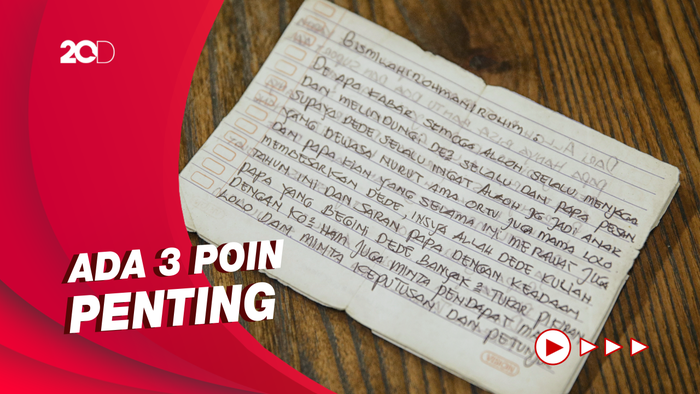 20D
Bismillahirohmanirohim.
DE APA KABAR SEMOGA ALLOH SELALU MENJAGA
DAN MELINDUNGI DE2 SELALU DAN PAPA PESAN
SUPAYA DEDE SELALU INGAT ALLOH JG JADI ANAK
YANG DEWASA NURUT AMA ORTU JUGA MAMA LOLO
DAN PAPA HAN YANG SELAMA INI MERAWAT JUGA
MEMBESARKAN DEDE, INSYA ALLAH DEDE KULIAH
TAHUN INI DAN SARAN PAPA DENGAN KEADAAN
PAPA YANG BEGINI DEDE BANYAK2 TUKAR PIKIRAN
DENGAN KO2 HAM JUGA MINTA PENDAPAT MA
LOLO DAM MINTA KEPUTUSAN DAN PETUNJU
VISION
ADA 3 POIN
PENTING